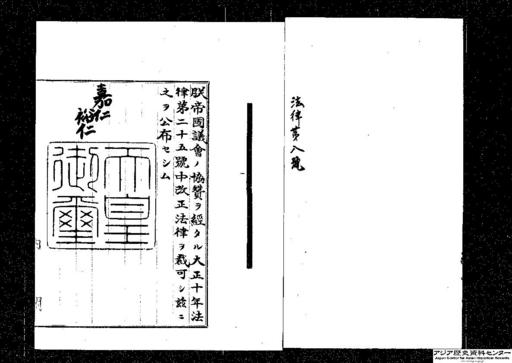 法律第八號
朕帝國議會ノ協贊ヲ經タル大正十年法
律第二十五號中改正法律ヲ裁可シ玆ニ
之ヲ公布セシム
嘉仁
裕仁
天皇
御璽
アジア歴史資料センター
Japan Center for Asian Historical Records